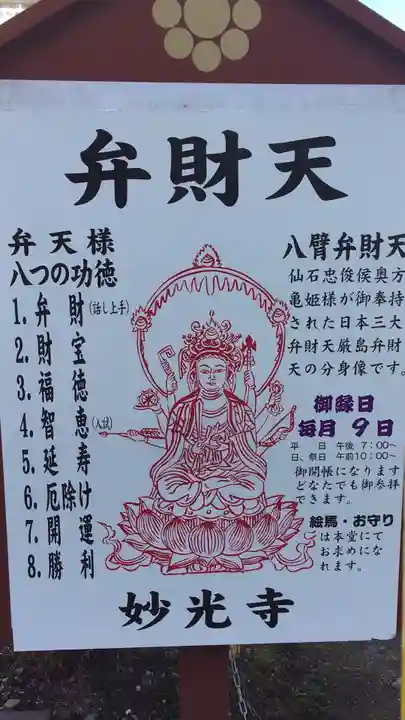 弁財天
弁天様
八つの功徳
1. 弁財(話し上手)
2. 財宝
3. 福徳
4. 智恵(入試)
5. 延寿
6. 厄除け
7. 開運
8. 勝利
八臂弁財天
仙石忠俊侯奥方
亀姫様が御奉持
された日本三大
弁財天厳島弁財
天の分身像です。
御縁日
毎月9日
平日 午後7:00〜
日、祭日 午前10:00〜
御開帳になります
どなたでも御参拝
できます。
絵馬・お守り
は本堂にて
お求めにな
れます。
妙光寺